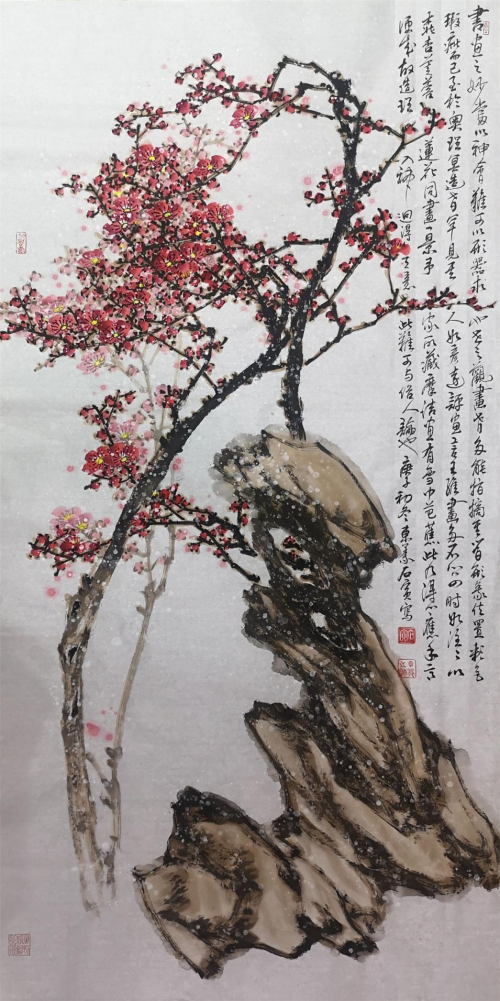 書画之妙當以神會難可以形器求也世之觀畫者多能指摘其間形象位置彩色
瑕疵而已至於奥理冥造者罕見其人如彦遠評画言王維畫多不問四時如往往以
桃杏芙蓉蓮花同畫一景予家所藏摩詰画有雪中芭蕉此乃得心應手意
便成故造理入神迥得天意此難可与俗人論也庚子初冬東萊石寅寫